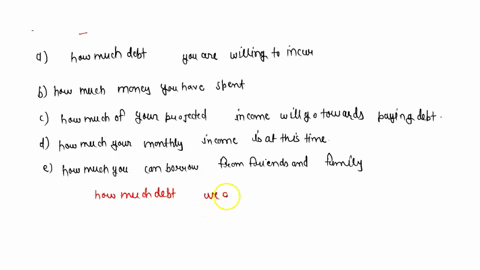 a) how much debt you are willing to incur
b) how much money you have spent
c) how much of your projected income will go towards paying debt.
d) how much your monthly income is at this time.
e) how much you can borrow from friends and family
how much debt we